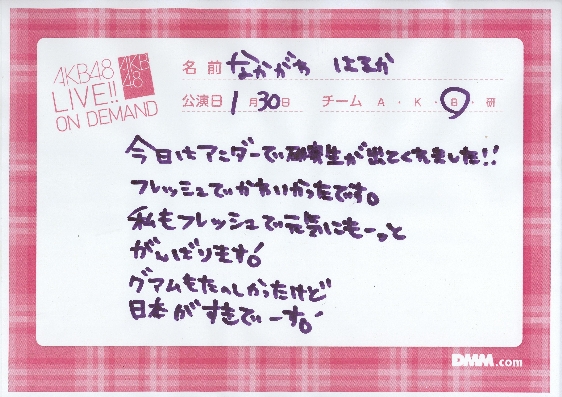 AKB48
LIVE!!
ON DEMAND
AKB
48
名前 なかがわ はるか
公演日 1月30日 チーム A・K・B・研
今日はアンダーで研究生が出てくれました!!
フレッシュでかわいかったです。
私もフレッシュで元気にもーっと
がんばります!
グアムもたのしかったけど
日本がすきでーす!
DMM.com